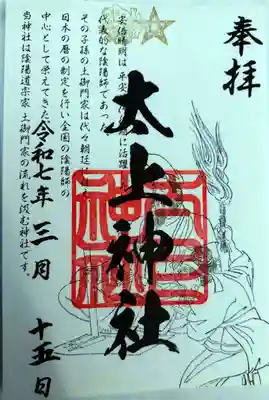 奉拝
太上神社
安倍晴明は 平安
に活躍し
代表的な陰陽師であっ
その子孫の土御門家は代々朝廷に
日本の暦の制定を行い全国の陰陽師の
中心として栄えてきた
当神社は陰陽道宗家 土御門家の流れを汲む神社です。
令和七年 三月 十五日